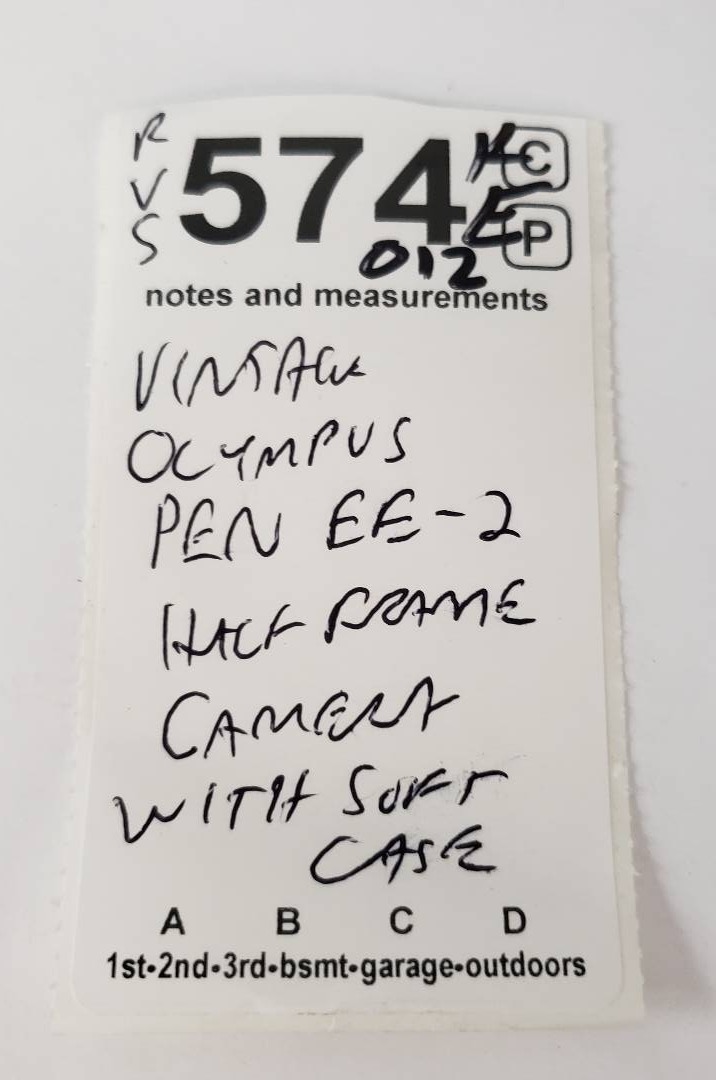 RVS
574
HE
C
P
012
notes and measurements
VINTAGE
OLYMPUS
PEN EE-2
HALF FRAME
CAMERA
WITH SOFT
CASE
A B C D
1st•2nd•3rd•bsmt•garage•outdoors